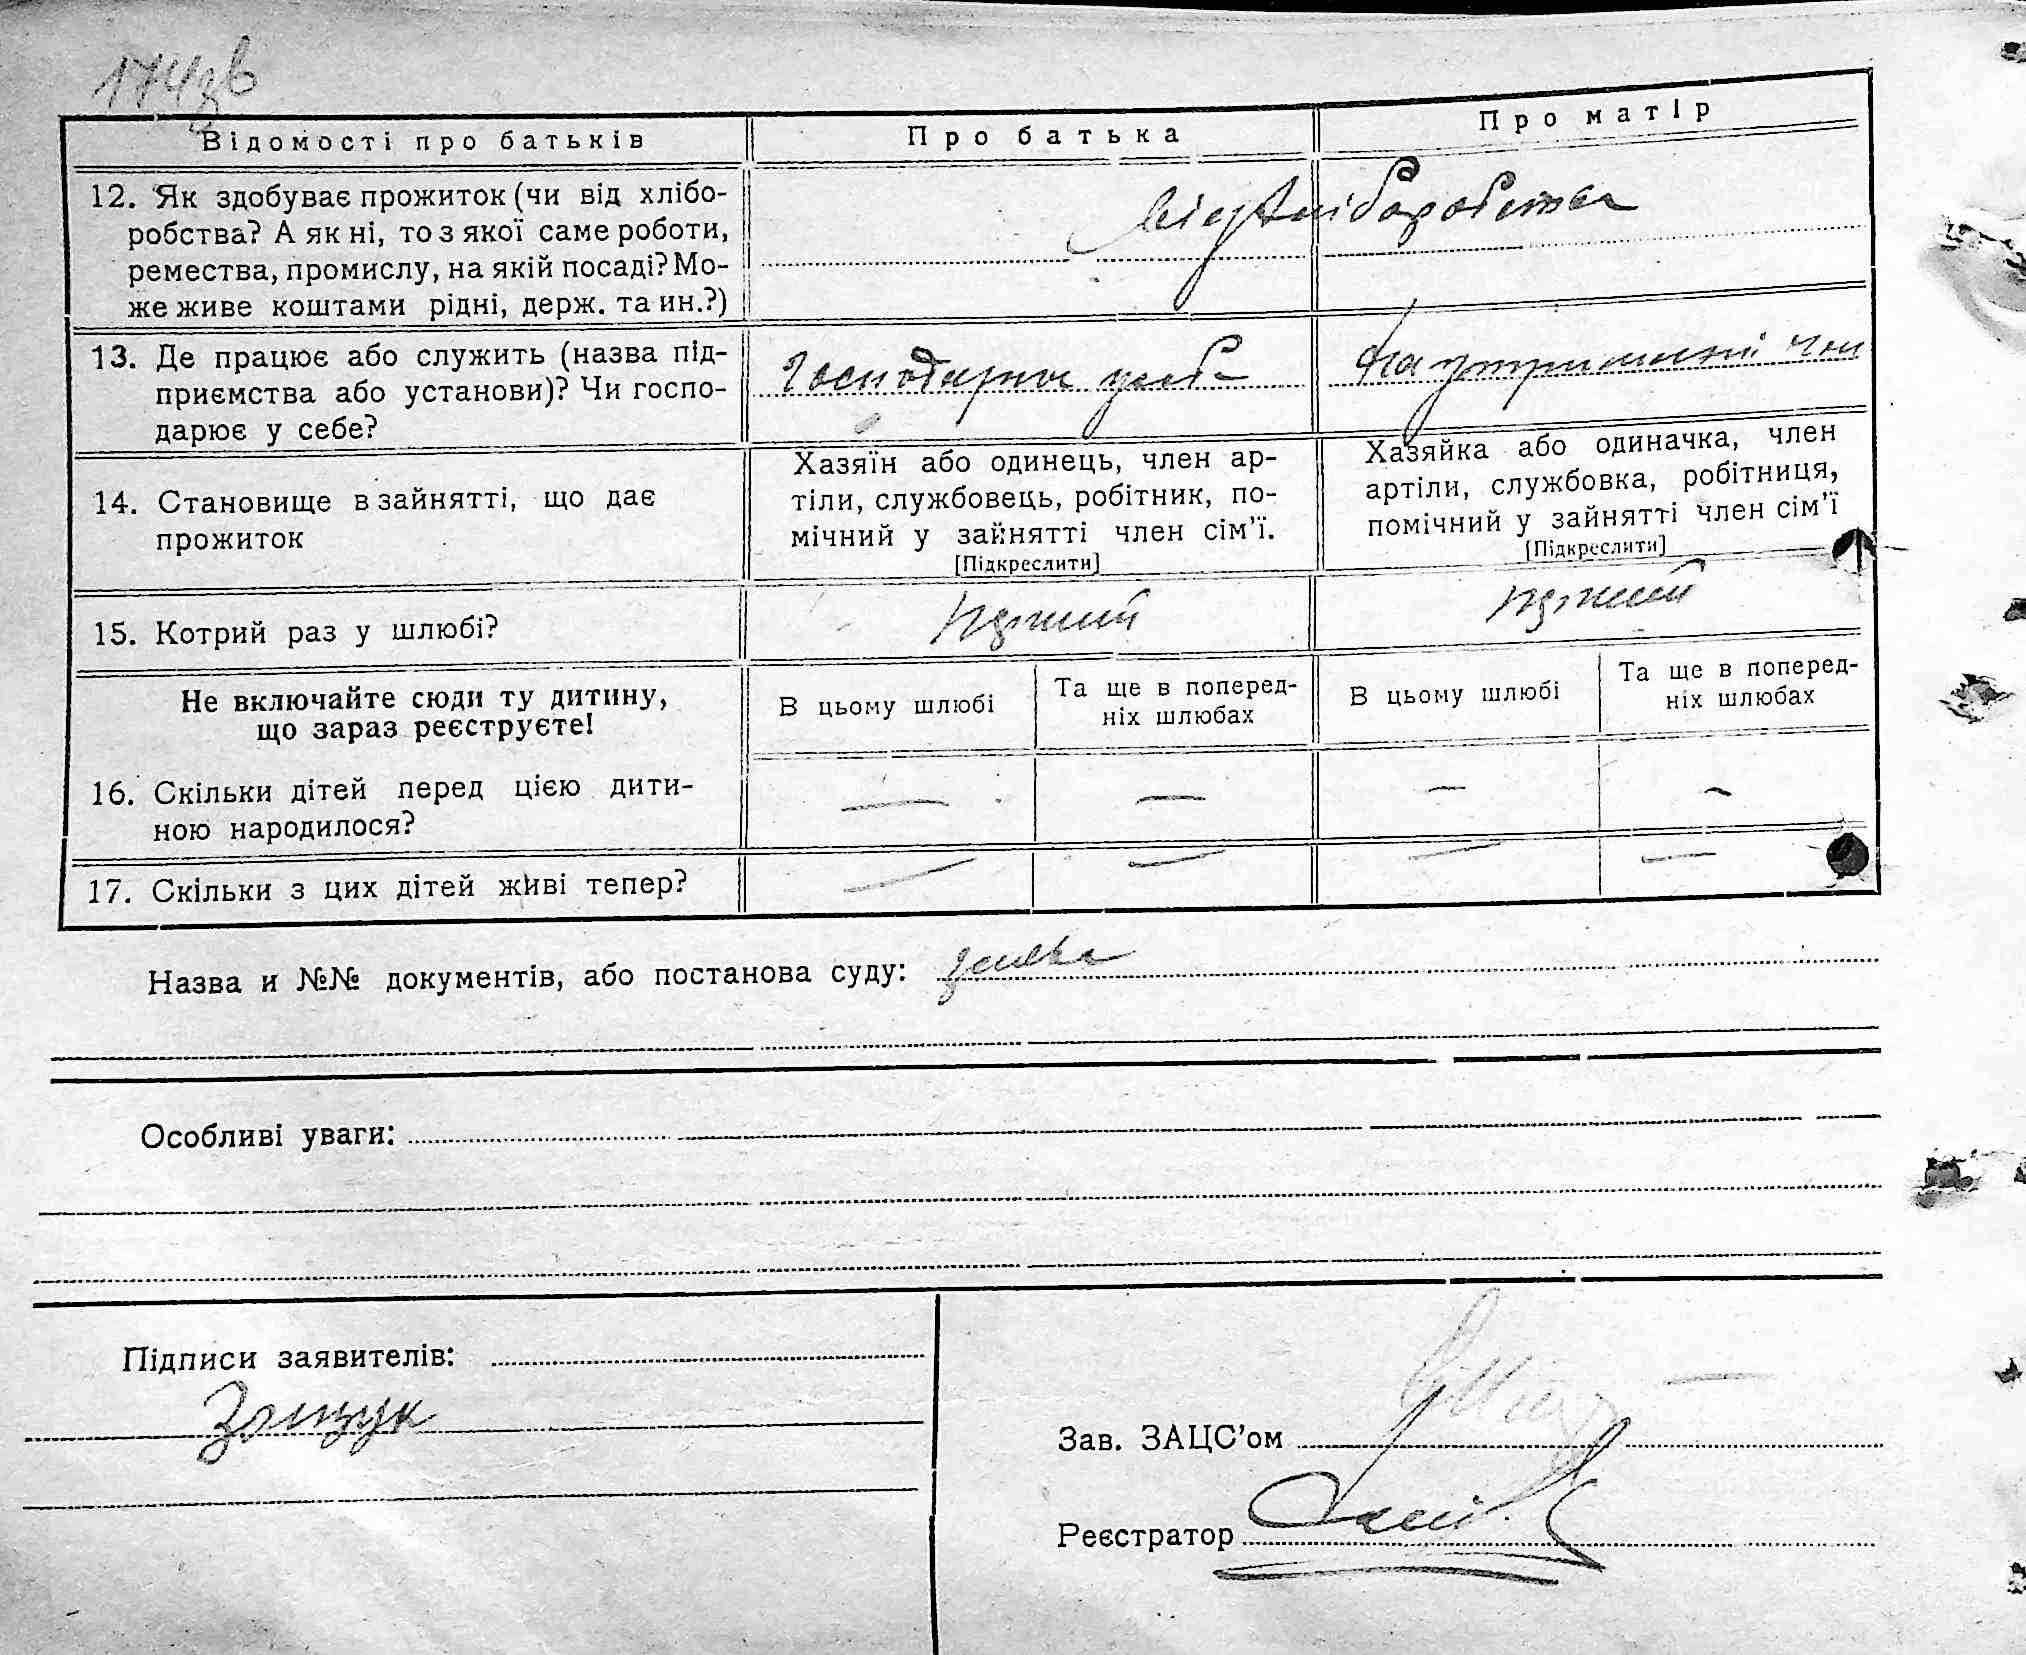 174зв
Відомості про батьків
Про батька
Про матір
12. Як здобуває прожиток (чи від хлібо-
робства? А як ні, то з якої саме роботи,
ремества, промислу, на якій посаді? Мо-
же живе коштами рідні, держ. та ин.?)
від хліборобства
13. Де працює або служить (назва під-
приємства або установи)? Чи госпо-
дарює у себе?
господарює у себе
на утриманні чол
14. Становище в зайнятті, що дає
прожиток
Хазяїн або одинець, член ар-
тіли, службовець, робітник, по-
мічний у зайнятті член сім'ї.
[Підкреслити]
Хазяйка або одиначка, член
артіли, службовка, робітниця,
помічний у зайнятті член сім'ї
[Підкреслити]
15. Котрий раз у шлюбі?
перший
перший
Не включайте сюди ту дитину,
що зараз реєструєте!
В цьому шлюбі
Та ще в поперед-
ніх шлюбах
В цьому шлюбі
Та ще в поперед-
ніх шлюбах
16. Скільки дітей перед цією дити-
ною народилося?
— — — —
17. Скільки з цих дітей живі тепер?
— — — —
Назва и №№ документів, або постанова суду: заява
Особливі уваги:
Підписи заявителів:
Зящук
Зав. ЗАЦС'ом
Реєстратор